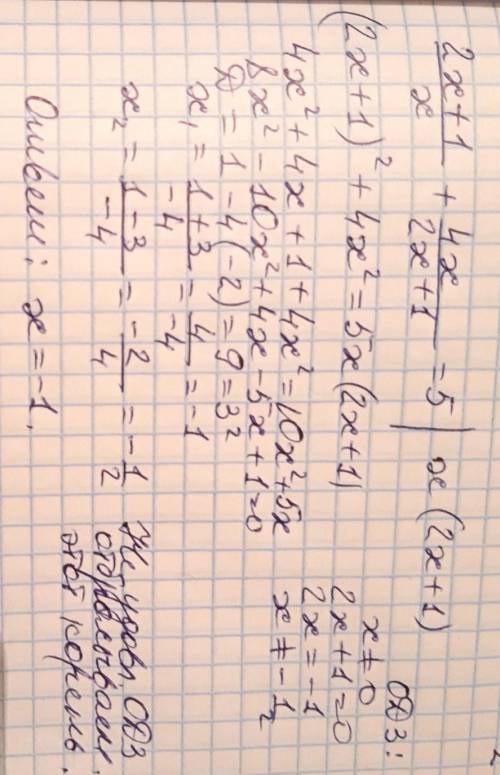 (2x+1)/x + 4x/(2x+1) = 5 | x(2x+1)
ОДЗ:
x ≠ 0
2x+1=0
2x=-1
x ≠ -1/2
(2x+1)² + 4x² = 5x(2x+1)
4x² + 4x + 1 + 4x² = 10x² + 5x
8x² - 10x² + 4x - 5x + 1 = 0
D = 1 - 4(-2) = 9 = 3²
x₁ = (1+3)/-4 = 4/-4 = -1
x₂ = (1-3)/-4 = -2/4 = -1/2
Не удовл. ОДЗ
отбрасываем
этот корень.
Ответ: x = -1.